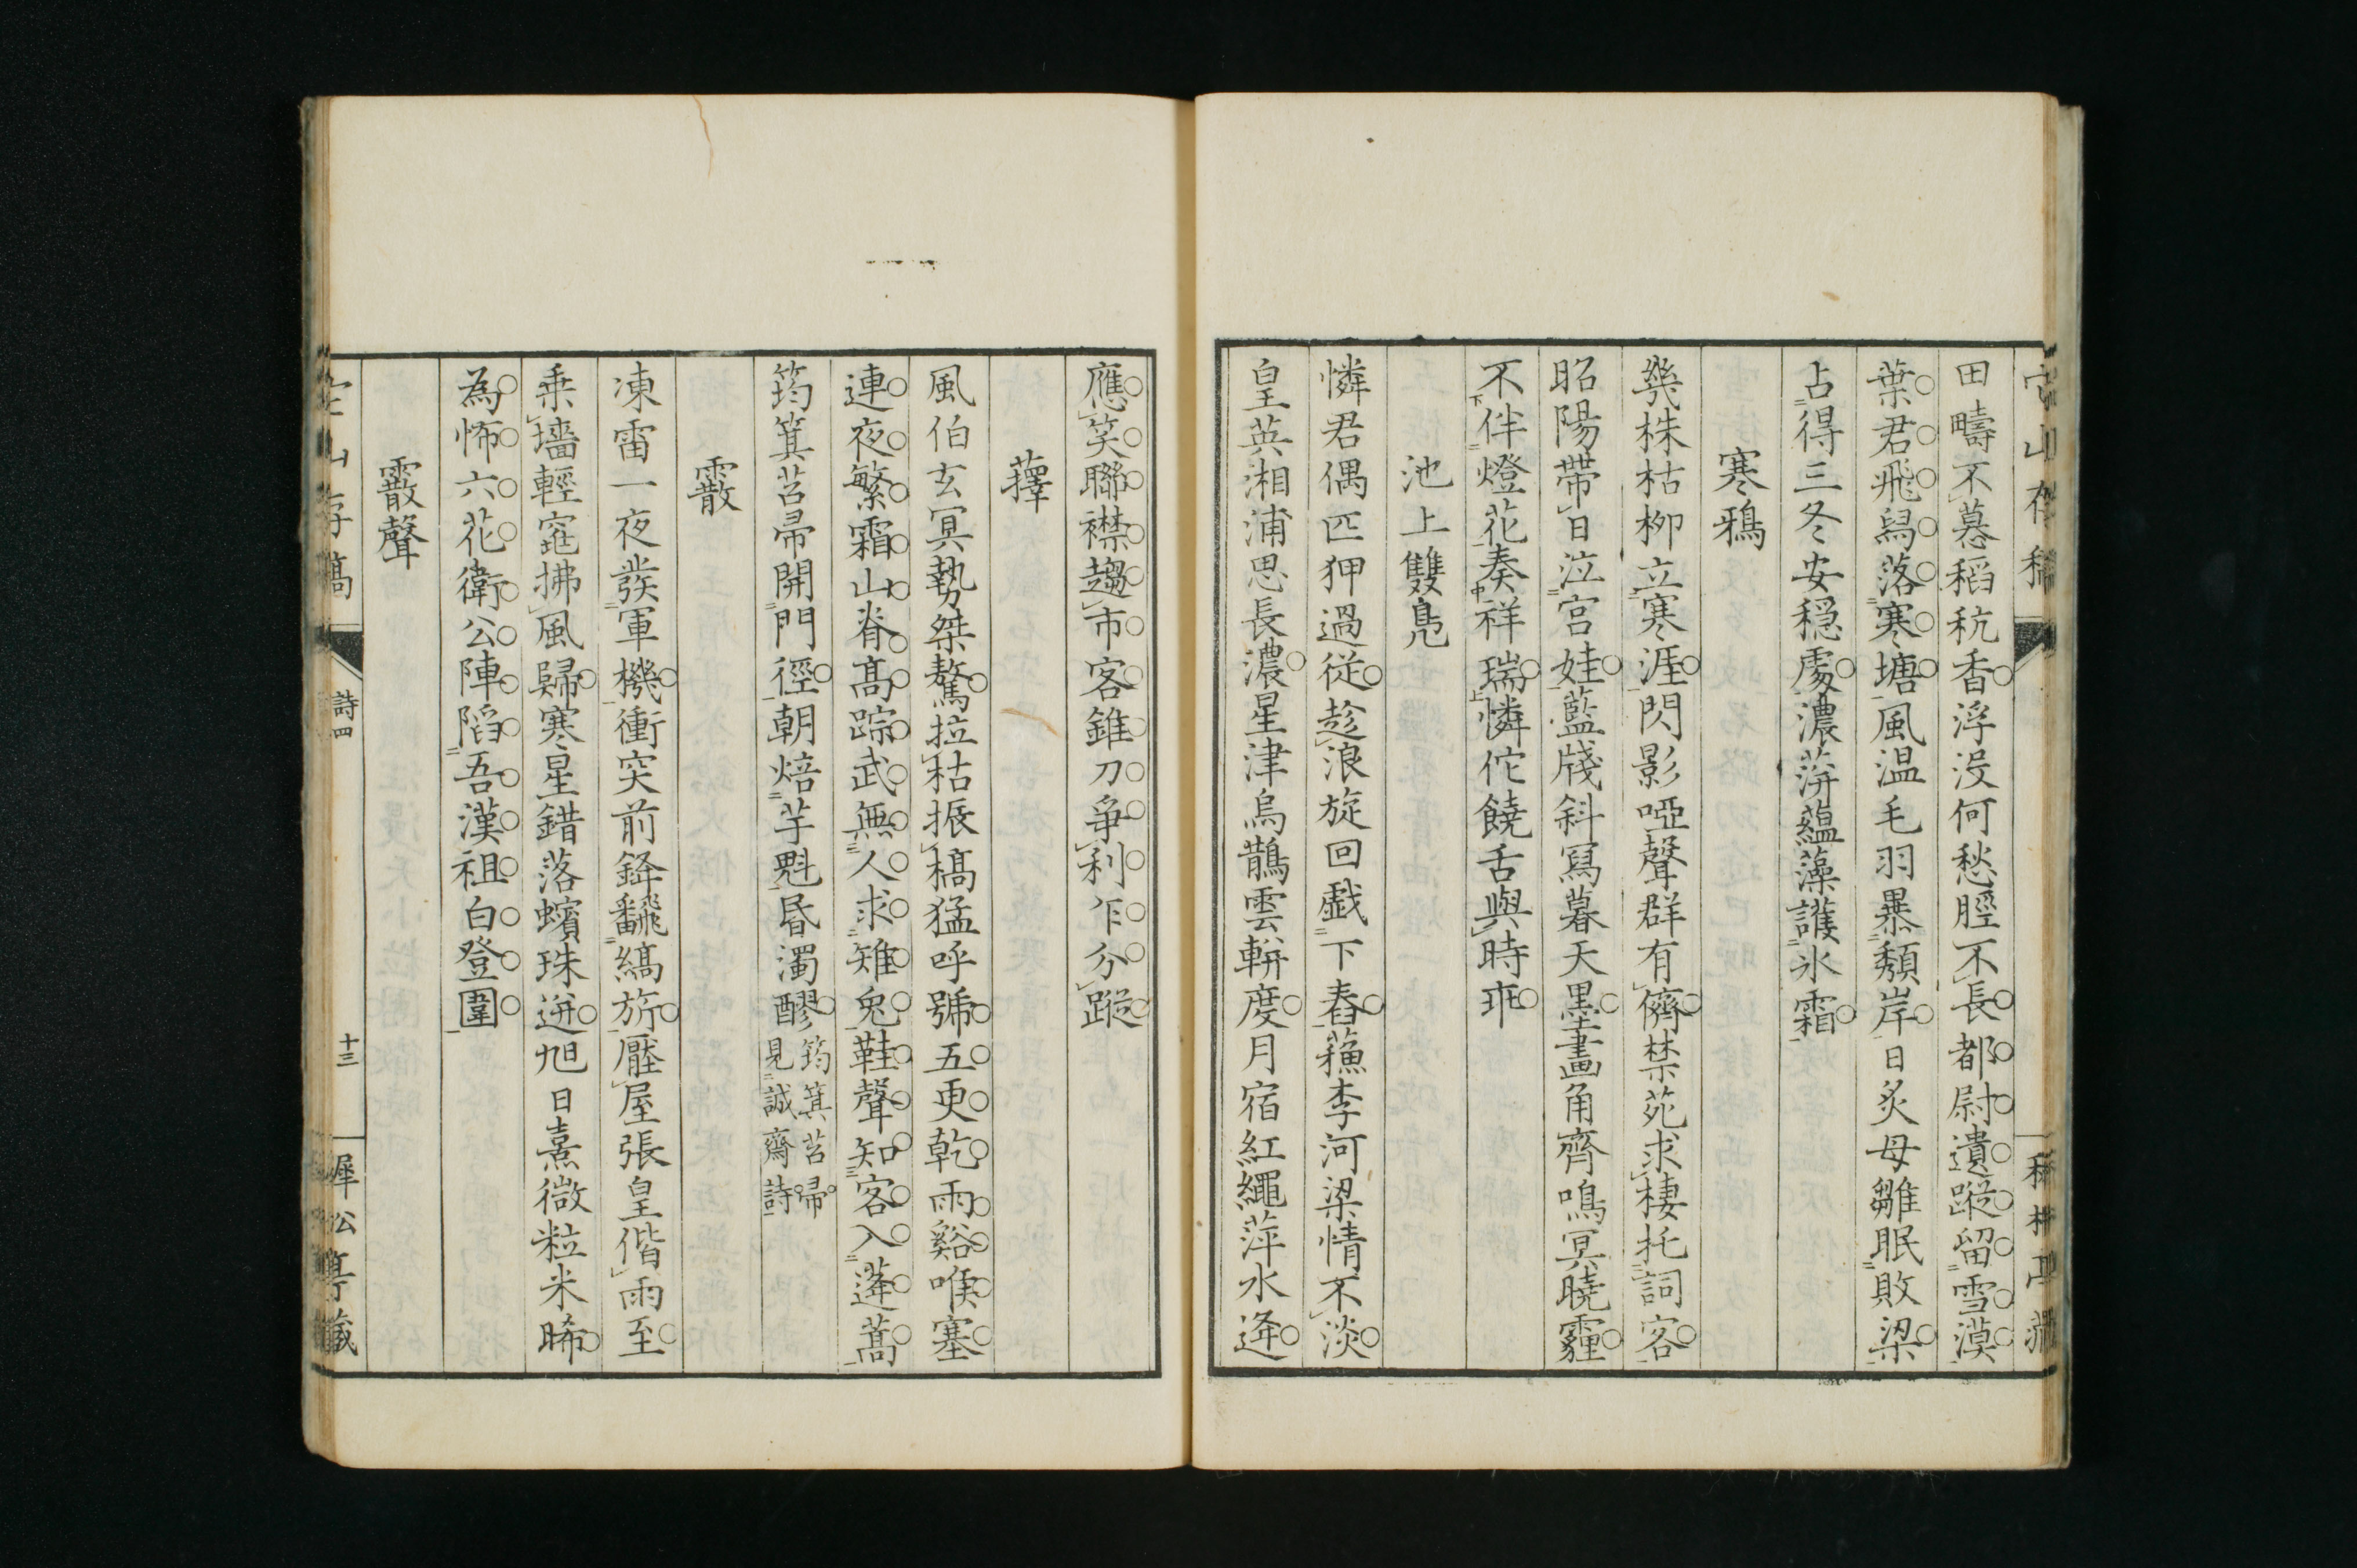 田疇不慕稻秔香浮没何愁脛不長都尉遺蹤留雪漠
葉君飛舄落寒塘風温毛羽暴頹岸日炙母雛眠敗梁
占得三冬安穏處濃蓱蘊藻護氷霜
寒鴉
幾株枯柳立寒涯閃影啞聲群有儕禁苑求棲托詞客
昭陽帶日泣宮娃藍牋斜冩暮天墨畫角齊鳴冥曉霾
不伴燈花奏祥瑞憐佗饒舌與時乖
池上雙鳧
憐君偶匹狎過從趁浪旋回戯下舂蘓李河梁情不淡
皇英湘浦思長濃星津烏鵲雲輧度月宿紅繩萍水逄
應笑聯襟趨市客錐刀爭利乍分蹤
蘀
風伯玄冥勢桀驁拉枯振槁猛呼號五更乾雨谿喉塞
連夜繁霜山脊高踪武無人求雉兔鞋聲知客入蓬蒿
筠箕苕帚開門徑朝焙芋魁昏濁醪
筠箕苕帚
見誠齋詩
霰
凍雷一夜發軍機衝突前鋒飜縞旂壓屋張皇偕雨至
乗墻輕窕拂風歸寒星錯落蠙珠迸旭日熹微粒米晞
為怖六花衛公陣陷吾漢祖白登圍
霰聲
詩四
十三
犀公亭藏